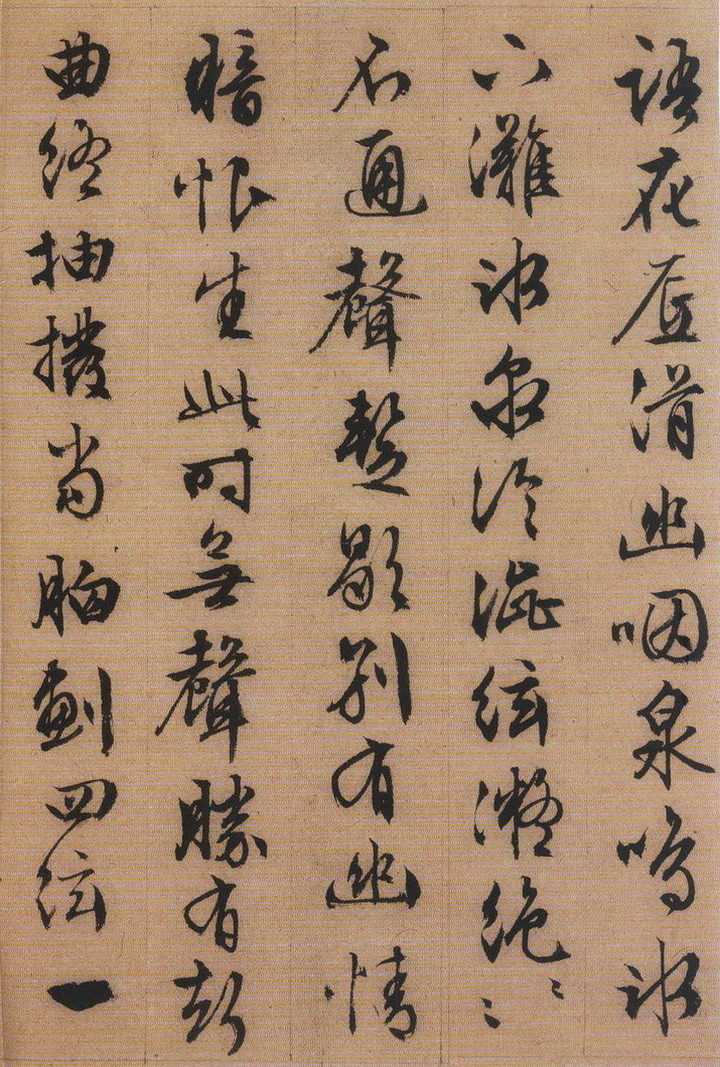 語花底滑幽咽泉鳴冰
下灘冰泉冷澁絃凝絶〻〻
不通聲暫歇別有幽情
暗恨生此時無聲勝有
曲終抽撥當胸劃四絃一